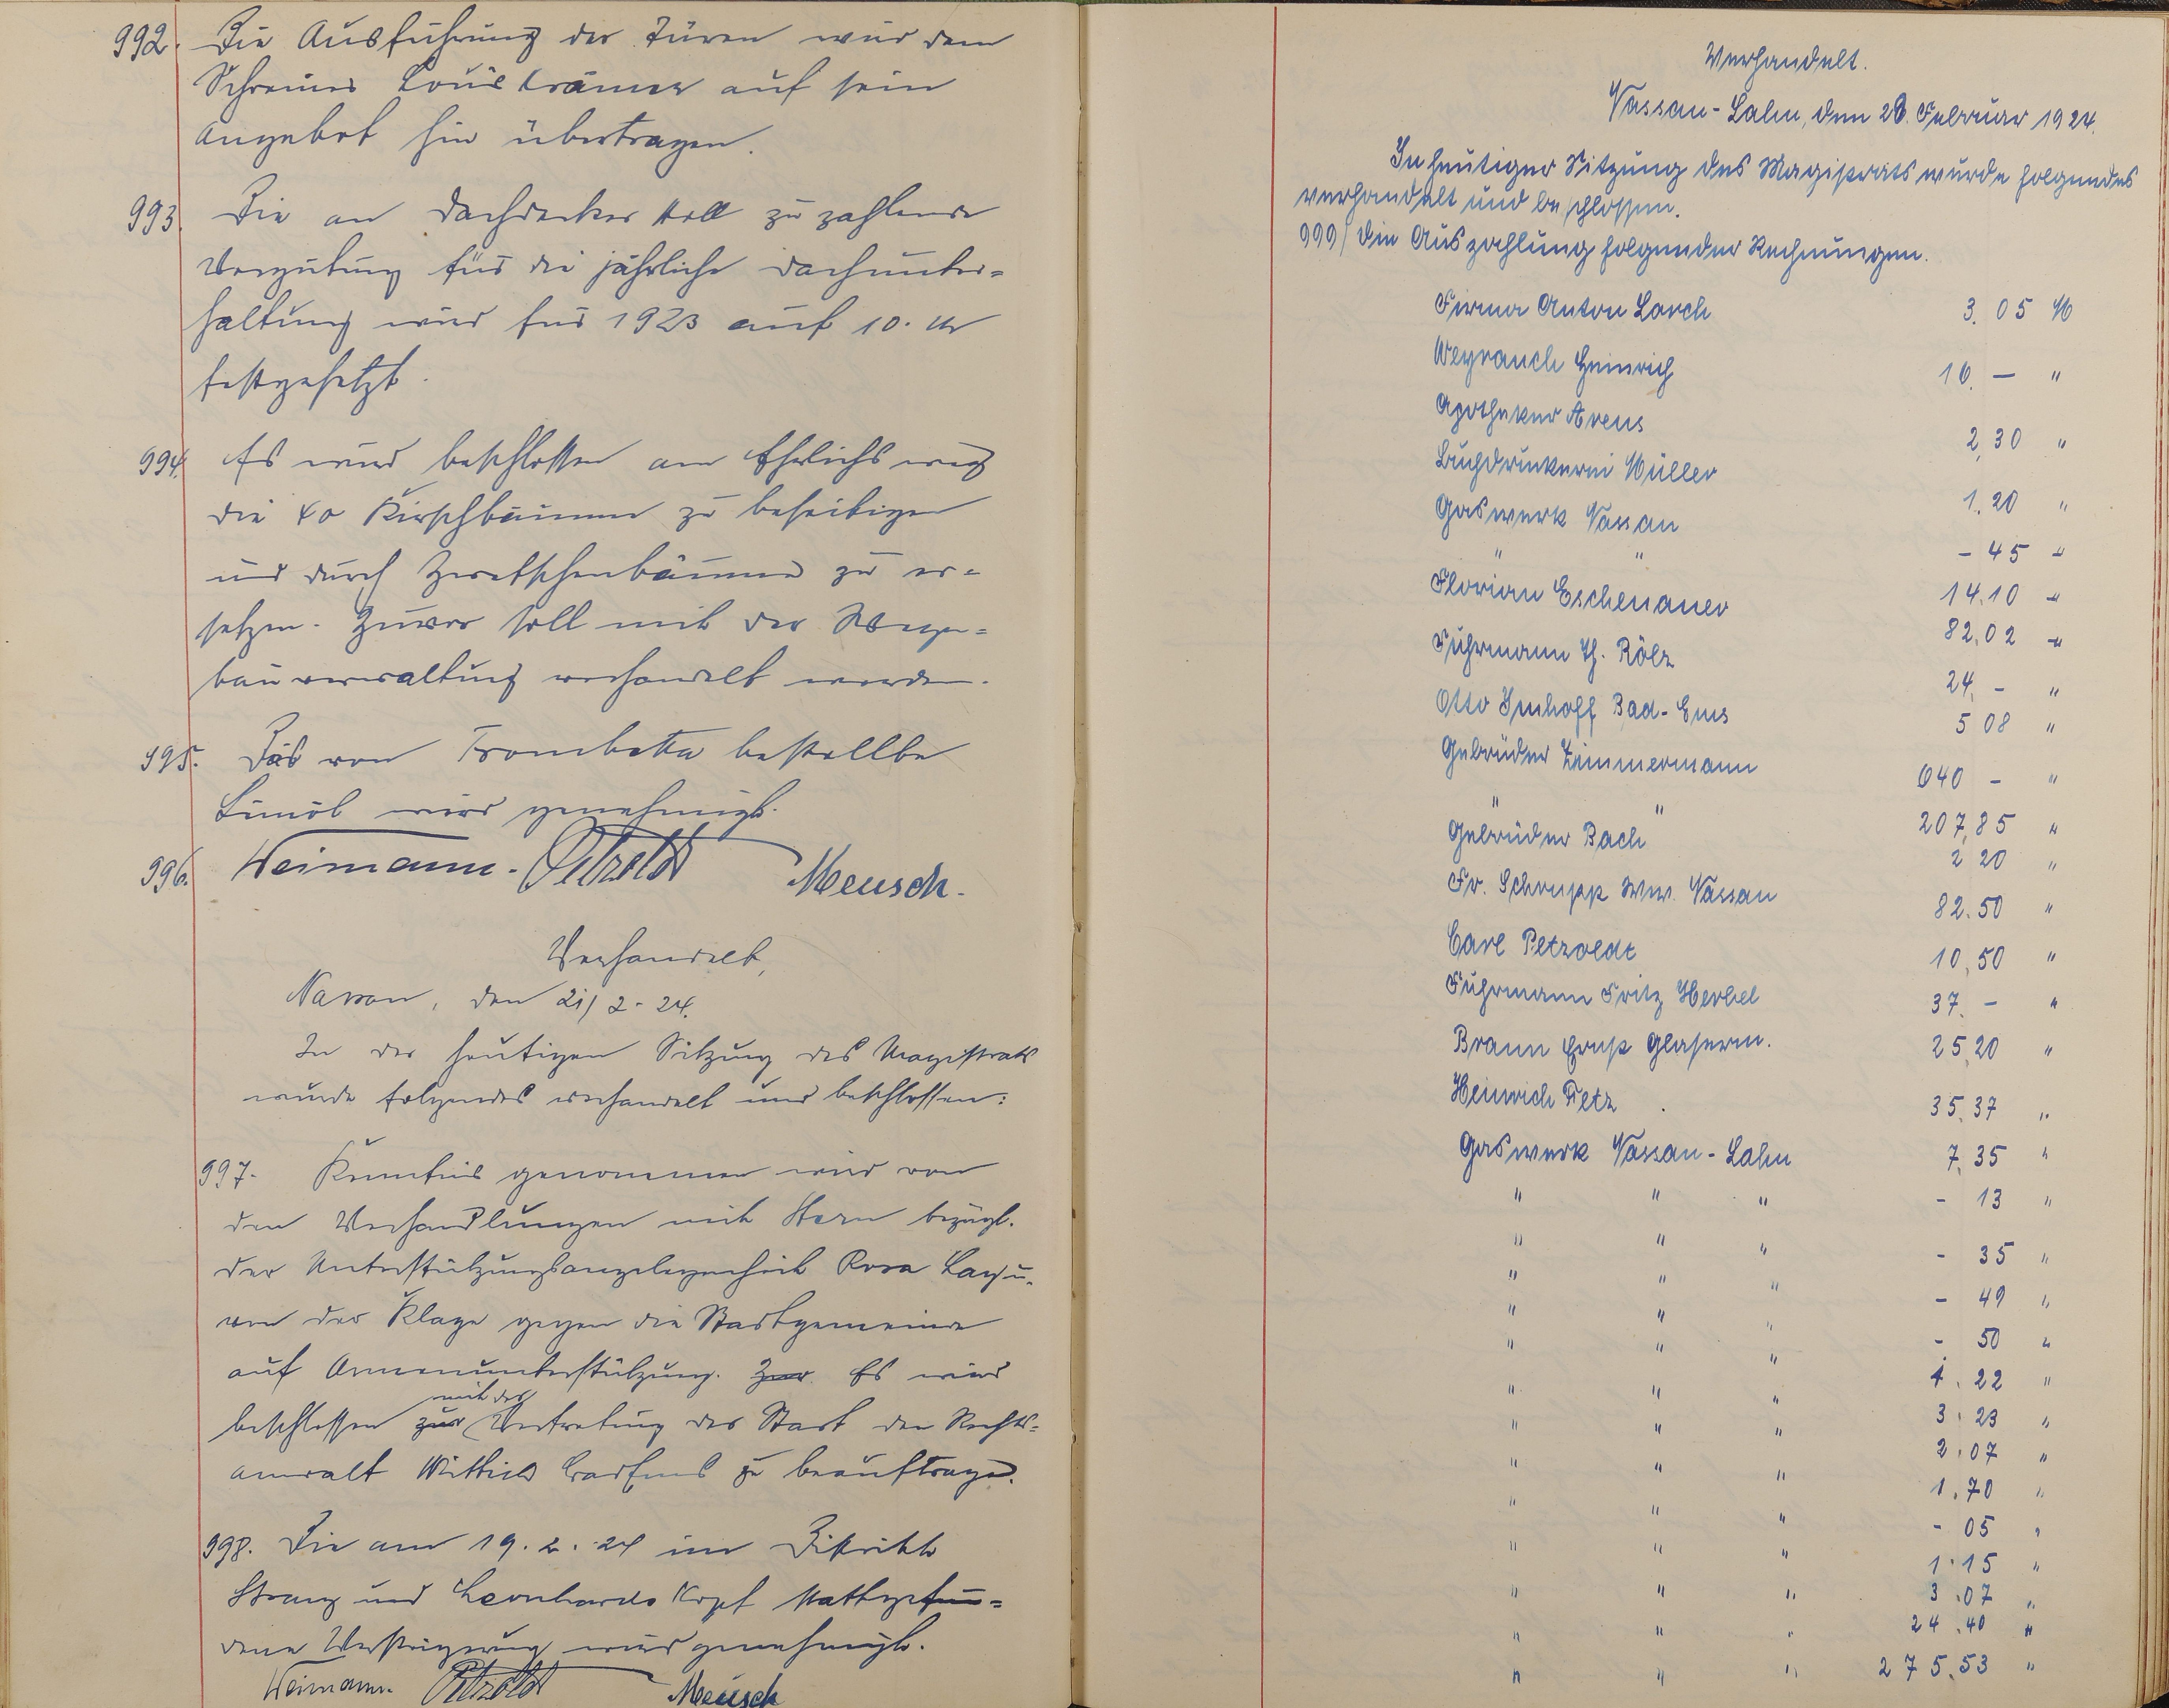 992. Die Ausführung der Türen wird dem
Schreiner Louis Krämer auf sein
Angebot hin übertragen.
993. Die an Dachdecker Holl zu zahlende
Vergütung für die jährliche Dachunter=
haltung wird für 1923 auf 10. M
festgesetzt.
994. Es wird beschlossen am Ehrlichsweg
die 40 Kirschbäume zu beseitigen
und durch Zwetschenbäume zu er=
setzen. Zuvor soll mit der Wege=
bauverwaltung verhandelt werden.
995. Das von Trombetta bestellte
wird genehmigt.
996. Weimann. Petzoldt Meusch.
Verhandelt,
Nassau, den 21/2. 24.
In der heutigen Sitzung des Magistrats
wurde folgendes verhandelt und beschlossen:
997. Kenntnis genommen wird von
den Verhandlungen mit Stern bezügl.
der Unterstützungsangelegenheit Rosa u.
von der Klage gegen die Stadtgemeinde
auf Armenunterstützung. Zur Es wird
mit der
beschlossen zur Vertretung der Stadt den Rechts=
anwalt zu beauftragen.
998. Die am 19. 2. 24 im Distrikte
Strang und Leonhards Kopf stattgefun=
dene Versteigerung wird genehmigt.
Weimann. Petzoldt Meusch
Verhandelt.
Nassau-Lahn, den 28. Februar 1924.
In heutiger Sitzung des Magistrats wurde folgendes
verhandelt und beschlossen.
999/ Die Auszahlung folgender Rechnungen.
Firma Anton Lorch 3. 05 M
Weyrauch Heinrich 16. — "
Apotheker Arens 2,30 "
Buchdruckerei Müller 1.20 "
Gaswerk Nassau - 45 "
" " 14.10 "
Florian Eschenauer 82,02 "
Fuhrmann Th. Rölz 24. - "
Otto Imhoff Bad-Ems 5 08 "
Gebrüder Zimmermann 640 - "
" " 207,85 "
Gebrüder Bach 2 20 "
Fr. Schrupp Ww. Nassau 82.50 "
Carl Petzoldt 10,50 "
Fuhrmann Fritz Herbel 37. - "
Braun Ernst Glaserm. 25,20 "
Heinrich Fetz 35.37 "
Gaswerk Nassau-Lahn 7,35 "
" " " - 13 "
" " " - 35 "
" " " - 49 "
" " " - 50 "
" " " 1. 22 "
" " " 3. 23 "
" " " 2.07 "
" " " 1.70 "
" " " - 05 "
" " " 1.15 "
" " " 3.07 "
" " " 24.40 "
" " " 275.53 "